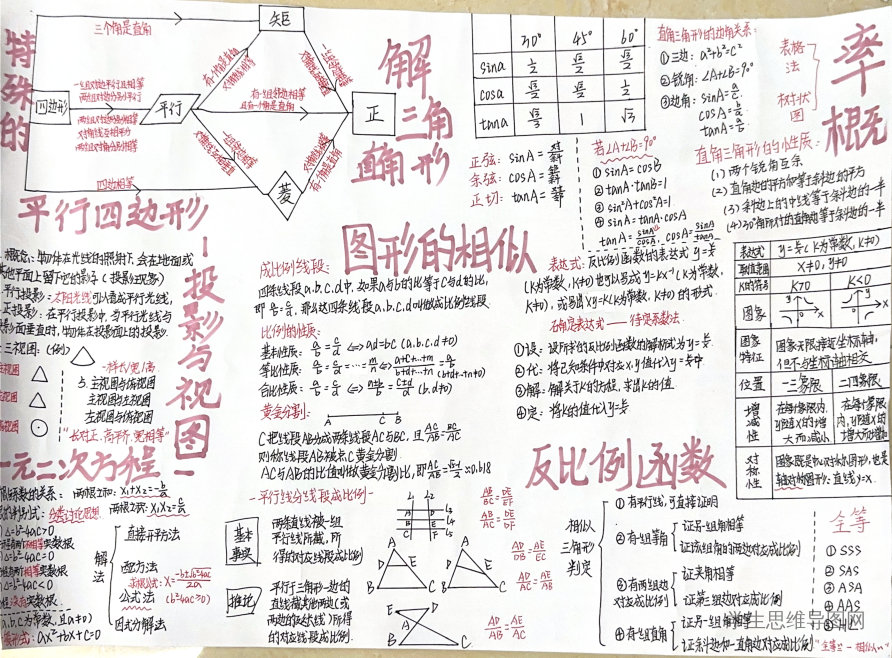 特殊的
平行四边形
三个角是直角
矩
四边形
平行
正
菱
四边相等
一组对边平行且相等
两组对边分别平行
两组对边分别相等
对角线互相平分
两组对角分别相等
有一个角是直角
对角线相等
有一组邻边相等
且有一个角是直角
解
三角
直角形
30° 45° 60°
sina 1/2 √2/2 √3/2
cosa √3/2 √2/2 1/2
tana √3/3 1 √3
正弦: sinA = 对/斜
余弦: cosA = 邻/斜
正切: tanA = 对/邻
若∠A+∠B=90°
① sinA=cosB
② tanA·tanB=1
③ sin²A+cos²A=1
④ sinA=tanA·cosA
tanA=sinA/cosA, cosA=sinA/tanA
直角三角形的边角关系:
① 三边: a²+b²=c²
② 锐角: ∠A+∠B=90°
③ 边角: sinA=a/c
cosA=b/c
tanA=a/b
表格法
树状图
率概
直角三角形的性质:
(1) 两个锐角互余
(2) 直角边的平方和等于斜边的平方
(3) 斜边上的中线等于斜边的一半
(4) 30°角所对的直角边等于斜边的一半
投影与视图
概念: 物体在光线的照射下, 会在地面或
其他平面上留下它的影子 (投影现象)
平行投影: 太阳光线可以看成平行光线,
正投影: 在平行投影中, 当平行光线与
投影面垂直时, 物体在投影面上的投影.
三视图: (例)
一样长/宽/高
主视图与俯视图
主视图与左视图
左视图与俯视图
"长对正, 高平齐, 宽相等"
图形的相似
成比例线段:
四条线段a.b.c.d中, 如果a与b的比等于c与d的比,
即 a/b=c/d, 那么这四条线段a.b.c.d叫做成比例线段
比例的性质:
基本性质: a/b=c/d ⟺ ad=bc (a.b.c.d≠0)
等比性质: a/b=c/d=…=m/n ⟺ a+c+…+m/b+d+…+n=a/b (b+d+…+n≠0)
合比性质: a/b=c/d ⟺ a±b/b=c±d/d (b.d≠0)
黄金分割:
A C B
C把线段AB分成两条线段AC与BC, 且AC/AB=BC/AC
则称线段AB被点C黄金分割
AC与AB的比值叫做黄金分割比, 即AC/AB=√5-1/2≈0.618
表达式: 反比例函数的表达式 y=k/x
(k为常数, k≠0) 也可以写成y=kx⁻¹ (k为常数,
k≠0), 或写出xy=k(k为常数, k≠0) 的形式.
确定表达式——待定系数法.
① 设: 设所求的反比例函数的解析式为y=k/x
② 代: 将已知条件中对应x, y值代入y=k/x中
③ 解: 解关于k的方程, 求出k的值
④ 定: 将k的值代入y=k/x
反比例函数
表达式 y=k/x (k为常数, k≠0)
取值范围 x≠0, y≠0
k的符号 k>0 k<0
图象
图象特征 图象无限接近坐标轴, 但不与坐标轴相交
位置 一三象限 二四象限
增减性 在每个象限内, y随x的增大而减小 在每个象限内, y随x的增大而增大
对称性 图象既是中心对称图形, 也是轴对称图形: 直线y=±x.
一元二次方程
两根之和: x₁+x₂=-b/a
两根之积: x₁x₂=c/a
分类讨论思想
△=b²-4ac>0
△=b²-4ac=0
△=b²-4ac<0
a≠0)
ax²+bx+c=0
解法
直接开平方法
配方法
求根公式: x=-b±√b²-4ac/2a
公式法 (b²-4ac≥0)
因式分解法
—平行线分线段成比例—
基本事实
两条直线被一组
平行线所截, 所
得的对应线段成比例
推论
平行于三角形一边的
直线截其他两边(或
两边的延长线) 所得
的对应线段成比例.
L₁ L₂
A D L₃
B E L₄
C F L₅
AB/BC=DE/EF
AB/AC=DE/DF
AD/DB=AE/EC
AD/AC=AE/AB
AD/AB=AE/AC
相似三角形判定
① 有平行线, 可直接证明
② 有一组等角
证另一组角相等
证该组角的两边对应成比例
③ 有两组边对应成比例
证夹角相等
证第三组边对应成比例
④ 有一组直角
证另一组角相等
证斜边和一直角边对应成比例
全等
① SSS
② SAS
③ ASA
④ AAS
⑤ HL
学生思维导图网